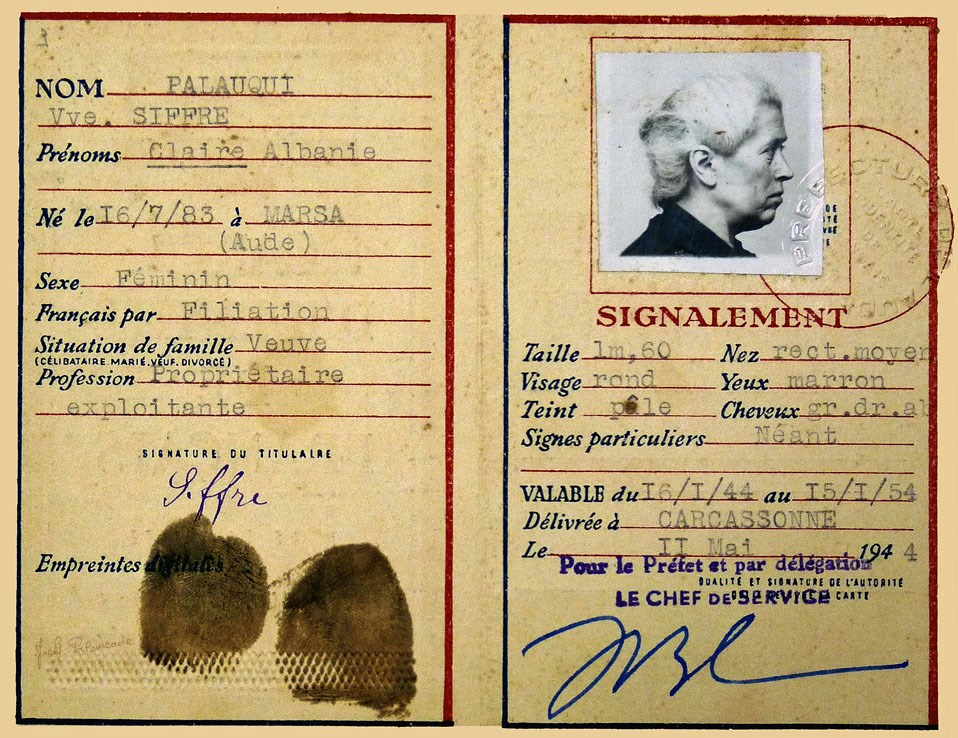 NOM PALAUQUI
Vve. SIFFRE
Prénoms Claire Albanie
Né le I6/7/83 à MARSA
(Aude)
Sexe Féminin
Français par Filiation
Situation de famille Veuve
(CÉLIBATAIRE.MARIÉ.VEUF.DIVORCÉ)
Profession Propriétaire
exploitante
SIGNATURE DU TITULAIRE
Siffre
Empreintes digitales
PREFECTURE
SIGNALEMENT
Taille 1m,60 Nez rect.moyen
Visage rond Yeux marron
Teint pâle Cheveux gr.dr.ab
Signes particuliers Néant
VALABLE du I6/I/44 au I5/I/54
Délivrée à CARCASSONNE
Le II Mai 194 4
Pour le Préfet et par délégation
QUALITÉ ET SIGNATURE DE L'AUTORITÉ
LE CHEF DE SERVICE
CARTE